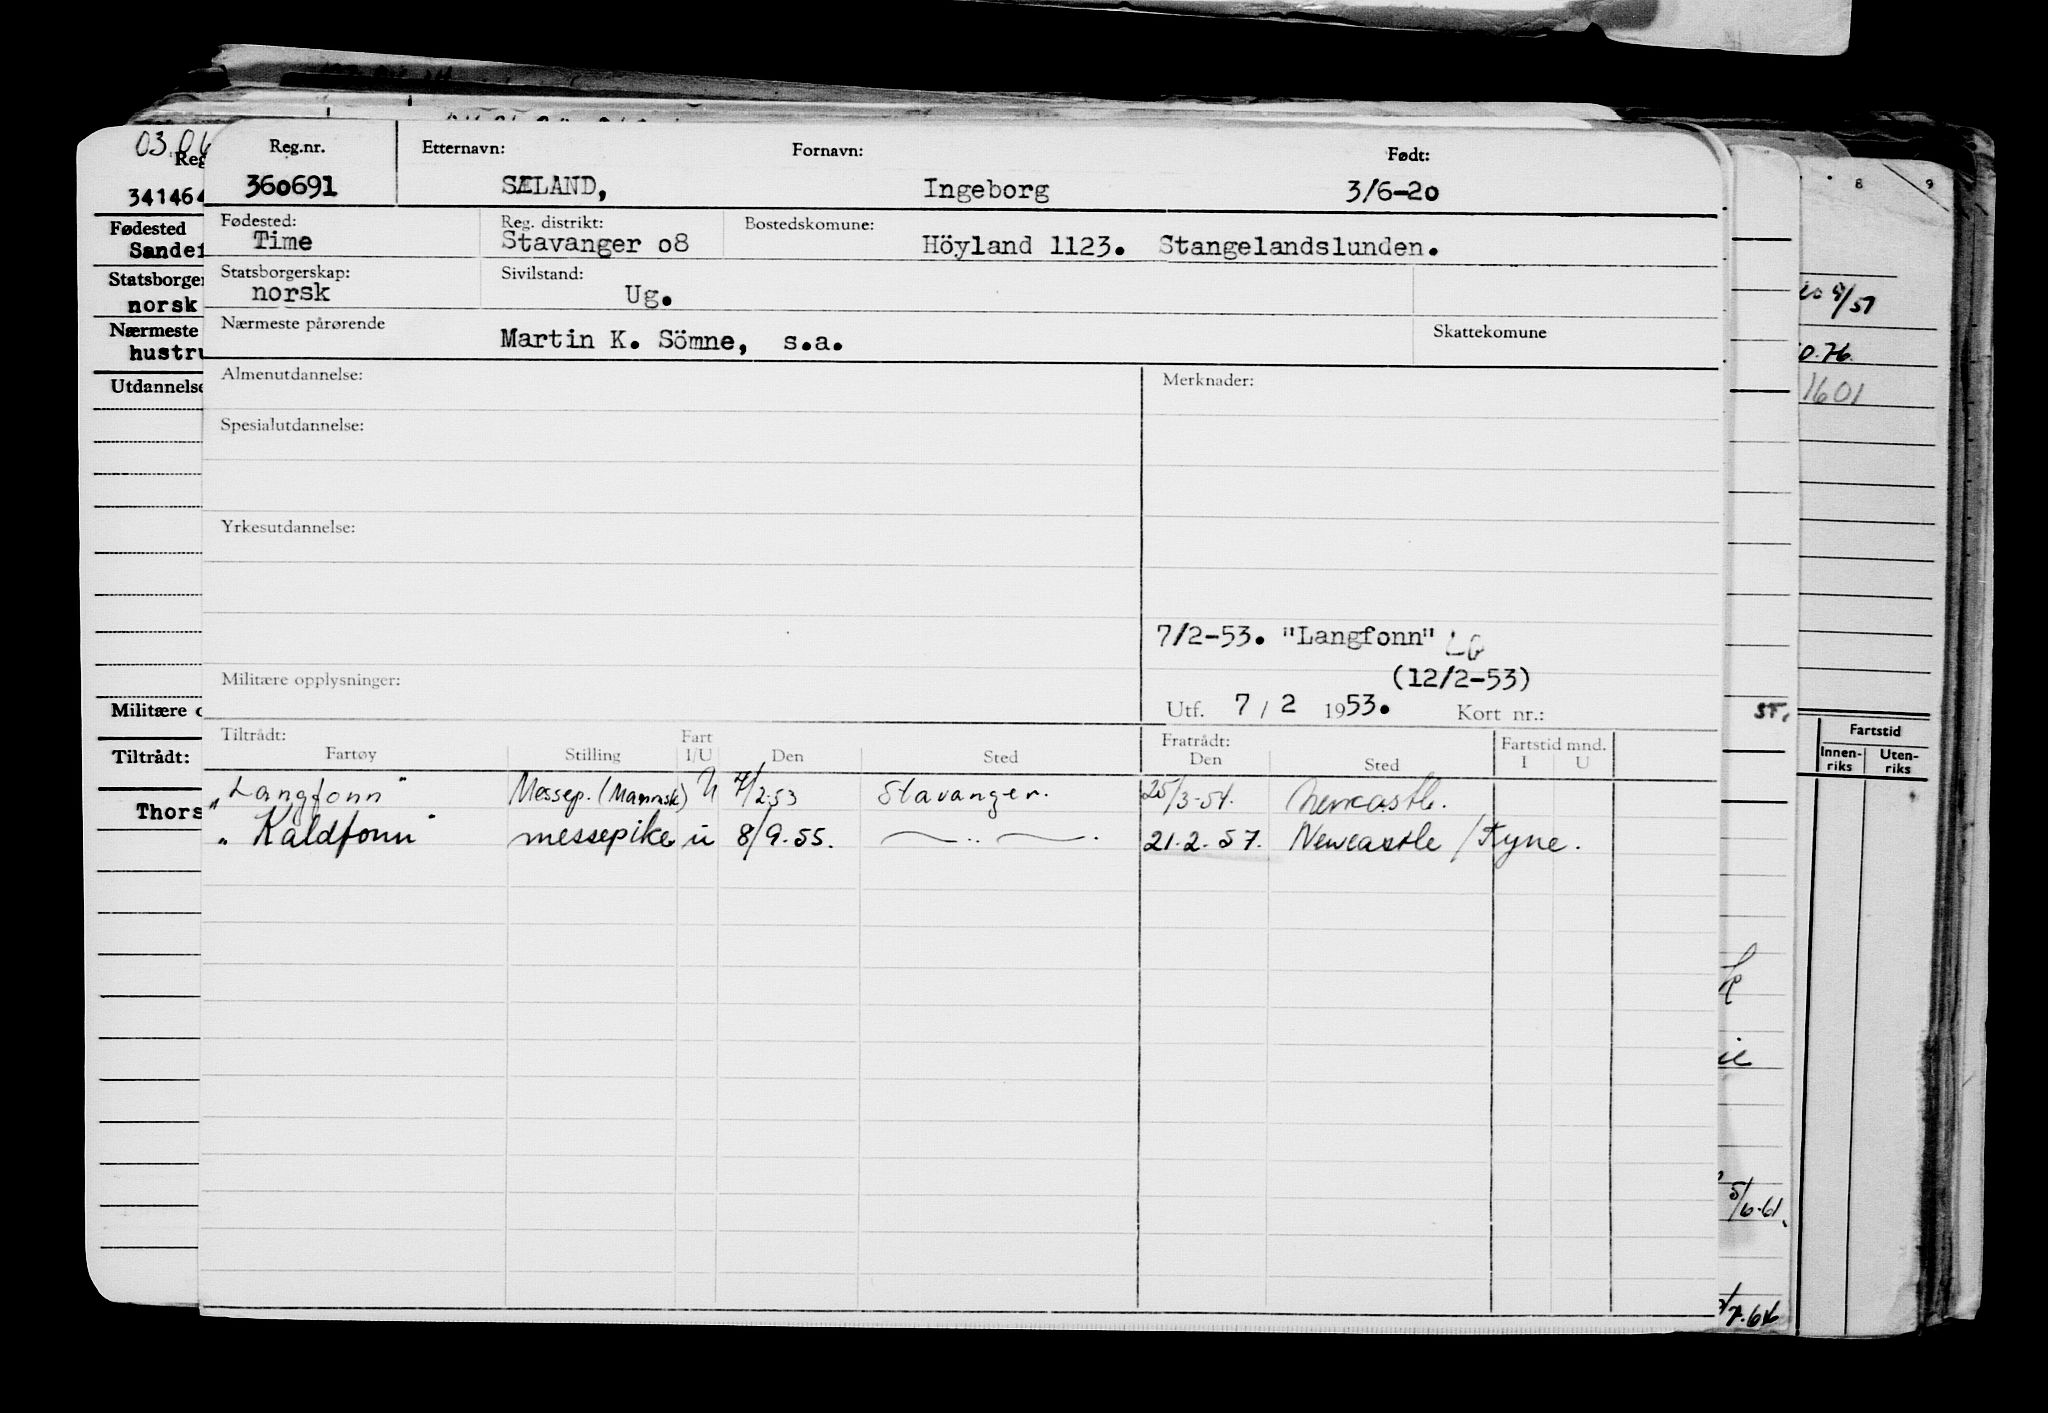 03.06
Reg
341464
Fødested
Sandef
Statsborger
norsk
Nærmeste
hustru
Utdannelse
Militære o
Tiltrådt:
Thors
Reg.nr. Etternavn: Fornavn: Født:
360691 SÆLAND, Ingeborg 3/6-20
Fødested: Reg. distrikt: Bostedskomune:
Time Stavanger o8 Höyland 1123. Stangelandslunden.
Statsborgerskap: Sivilstand:
norsk Ug.
Nærmeste pårørende Skattekomune
Martin K. Sömne, s.a.
Almenutdannelse: Merknader:
Spesialutdannelse:
Yrkesutdannelse:
7/2-53. "Langfonn"
(12/2-53)
Militære opplysninger:
Utf. 7 / 2 1953. Kort nr.:
Tiltrådt: Fart Fratrådt: Fartstid mnd.
Fartøy Stilling I/U Den Sted Den Sted I U
"Langfonn" Messep. (Mannsk) U 7/2-53 Stavanger. 25/3-54. Newcastle.
"Kaldfonn" messepike u 8/9-55. — " — . 21.2.57. Newcastle / Tyne.
8 9
5/51
0.76.
1601
ST.
Fartstid
Innen- Uten-
riks riks
k
ie
5/6-61.
7.64